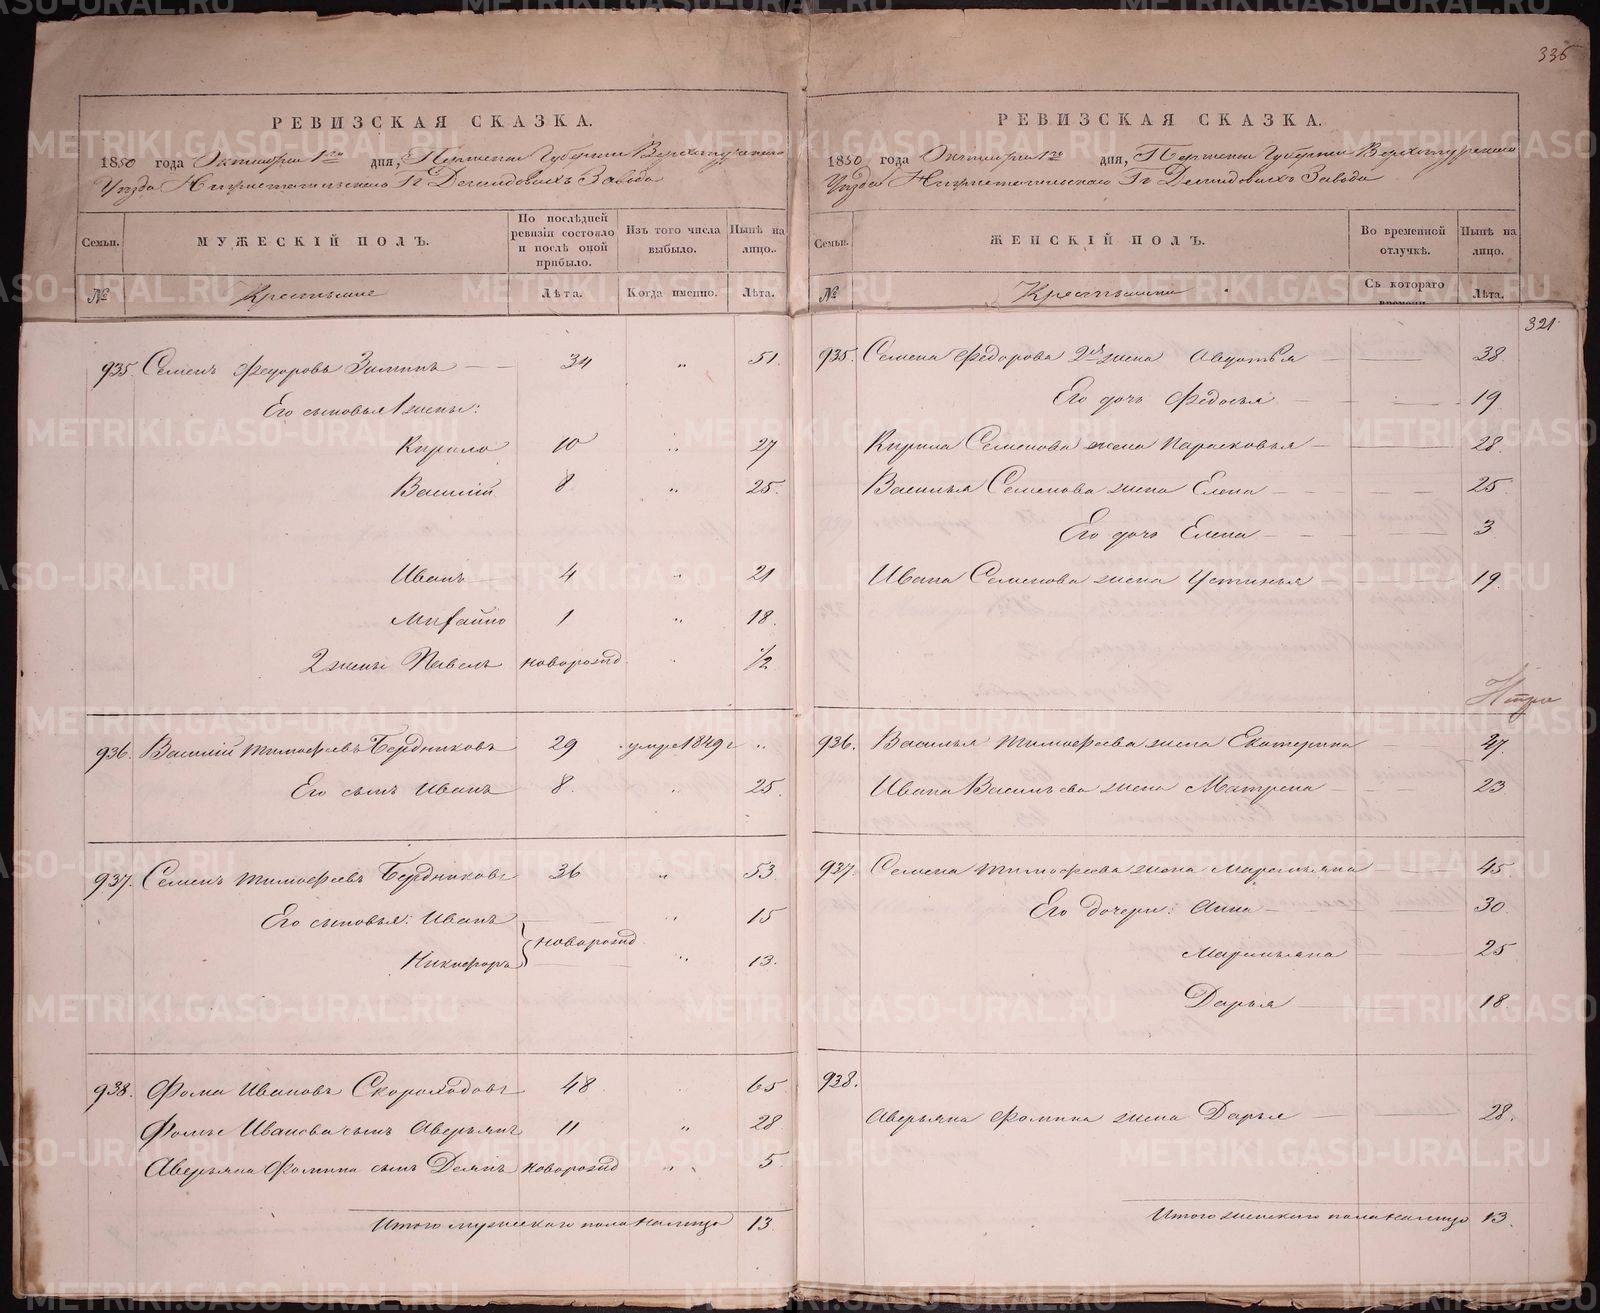 336
РЕВИЗСКАЯ СКАЗКА.
1850 года Октября 1го дня, Пермской Губернии Верхотурскаго
Уѣзда Нижнетагильскаго Гг Демидовыхъ Завода
Семьи.
МУЖЕСКІЙ ПОЛЪ.
По послѣдней ревизіи состояло и послѣ оной прибыло.
Изъ того числа выбыло.
Нынѣ на лицо.
№
Крестьяне
Лѣта.
Когда именно.
Лѣта.
935. Семенъ Федоровъ Зиминъ 34 " 51.
Его сыновья 1 жены:
Кирило 10 " 27
Василій 8 " 25.
Иванъ 4 " 21
Михайло 1 " 18.
2 жены Павелъ новорожд. " 1/2
936. Василій Тимофеевъ Бердниковъ 29 умре 1849 г "
Его сынъ Иванъ 8. " 25.
937. Семенъ Тимофеевъ Бердниковъ 36 " 53.
Его сыновья: Иванъ " 15
новорожд.
Никифоръ " 13.
938. Фома Ивановъ Скороходовъ 48 65
Фомы Иванова сынъ Аверьянъ 11 " 28
Аверьяна Фомина сынъ Демянъ новорожд " 5.
Итого мужескаго пола налицо 13.
РЕВИЗСКАЯ СКАЗКА.
1850 года Октября 1го дня, Пермской Губерніи Верхотурскаго
Уѣзда Нижнетагильскаго Гг Демидовыхъ Завода
Семьи.
ЖЕНСКІЙ ПОЛЪ.
Во временной отлучкѣ.
Нынѣ на лицо.
№
Крестьянки
Съ котораго времени.
Лѣта.
321.
935. Семена Федорова 2я жена Авдотья 38.
Его дочь Федосья 19
Кирила Семенова жена Парасковья 28.
Василья Семенова жена Елена 25
Его дочь Елена 3
Ивана Семенова жена Устинья 19.
936. Василья Тимофеева жена Екатерина 47
Ивана Васильева жена Матрена 23
937. Семена Тимофеева жена Маремьяна 45
Его дочери: Анна 30.
Маремьяна 25
Дарья 18
938.
Аверьяна Фомина жена Дарья 28.
Итого женскаго пола налицо 13.
METRIKI.GASO-URAL.RU